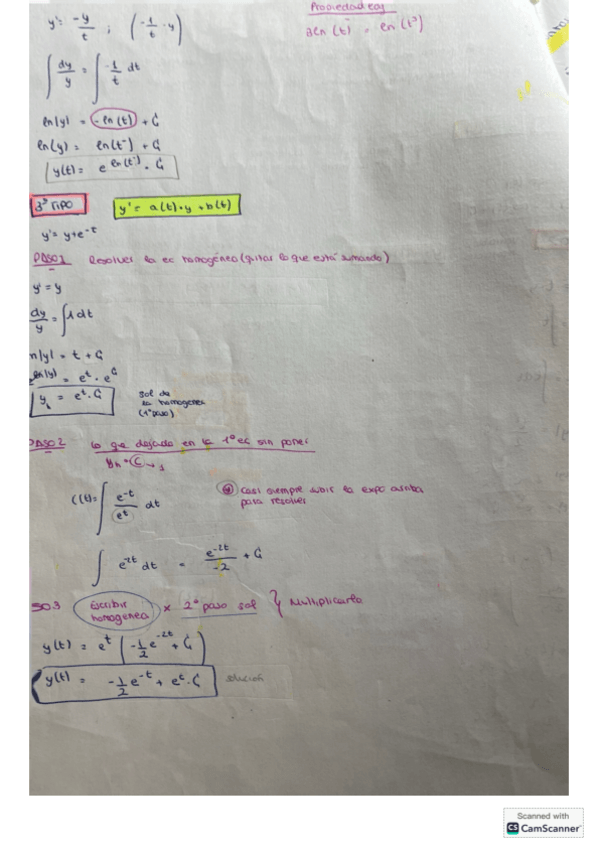 Propiedad eq
y' = -y/t ; (-1/t · y)
3ln(t) = ln(t³)
∫ dy/y = ∫ -1/t dt
ln|y| = -ln(t) + C
ln(y) = ln(t⁻) + C
y(t) = e ln(t⁻) · C
3º TIPO
y' = a(t)·y + b(t)
y' = y + e^-t
PASO 1 Resolver la ec homogénea (quitas lo que está sumando)
y' = y
dy/y = ∫ 1 dt
n|y| = t + C
ln|y| = e^t · e^C
y = e^t · C
sol de la homogenea (1º paso)
PASO 2 lo que dejado en la 1ª ec sin poner
C(t) = ∫ e^-t/e^t dt
casi siempre subir la expo arriba
para resolver
∫ e^2t dt = e^-2t/-2 + C
SO 3 Escribir homogenea × 2º paso sol } Multiplicarlo
y(t) = e^t (-1/2 e^-2t + C)
y(t) = -1/2 e^-t + e^t · C solución
Scanned with
CS CamScanner